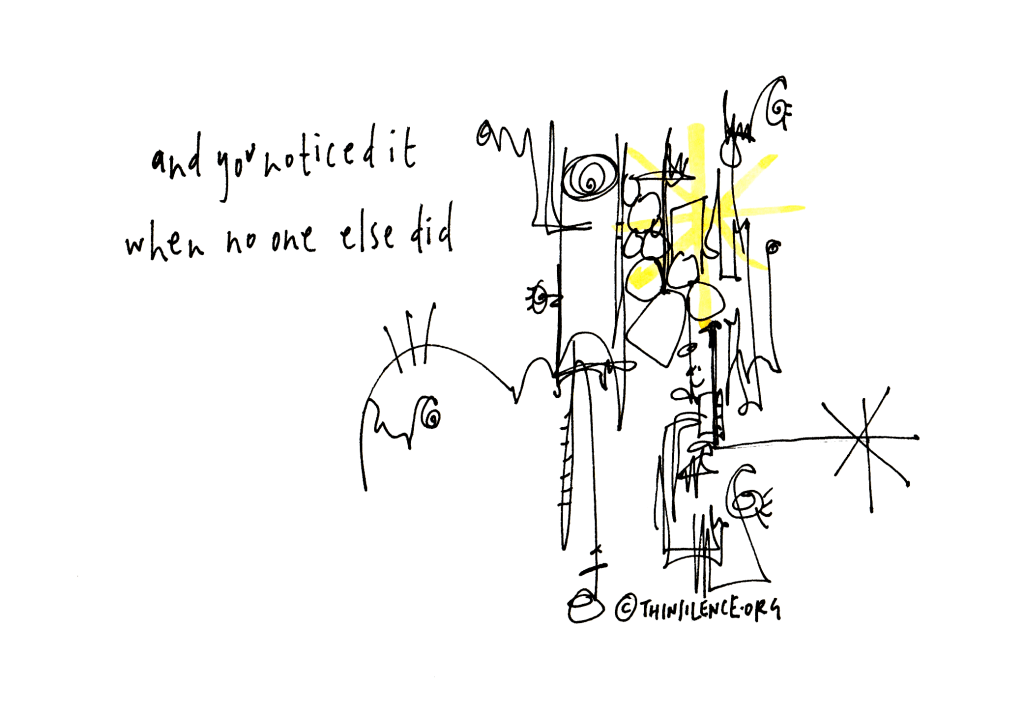 and you noticed it
when no one else did
© THINSILENCE.ORG